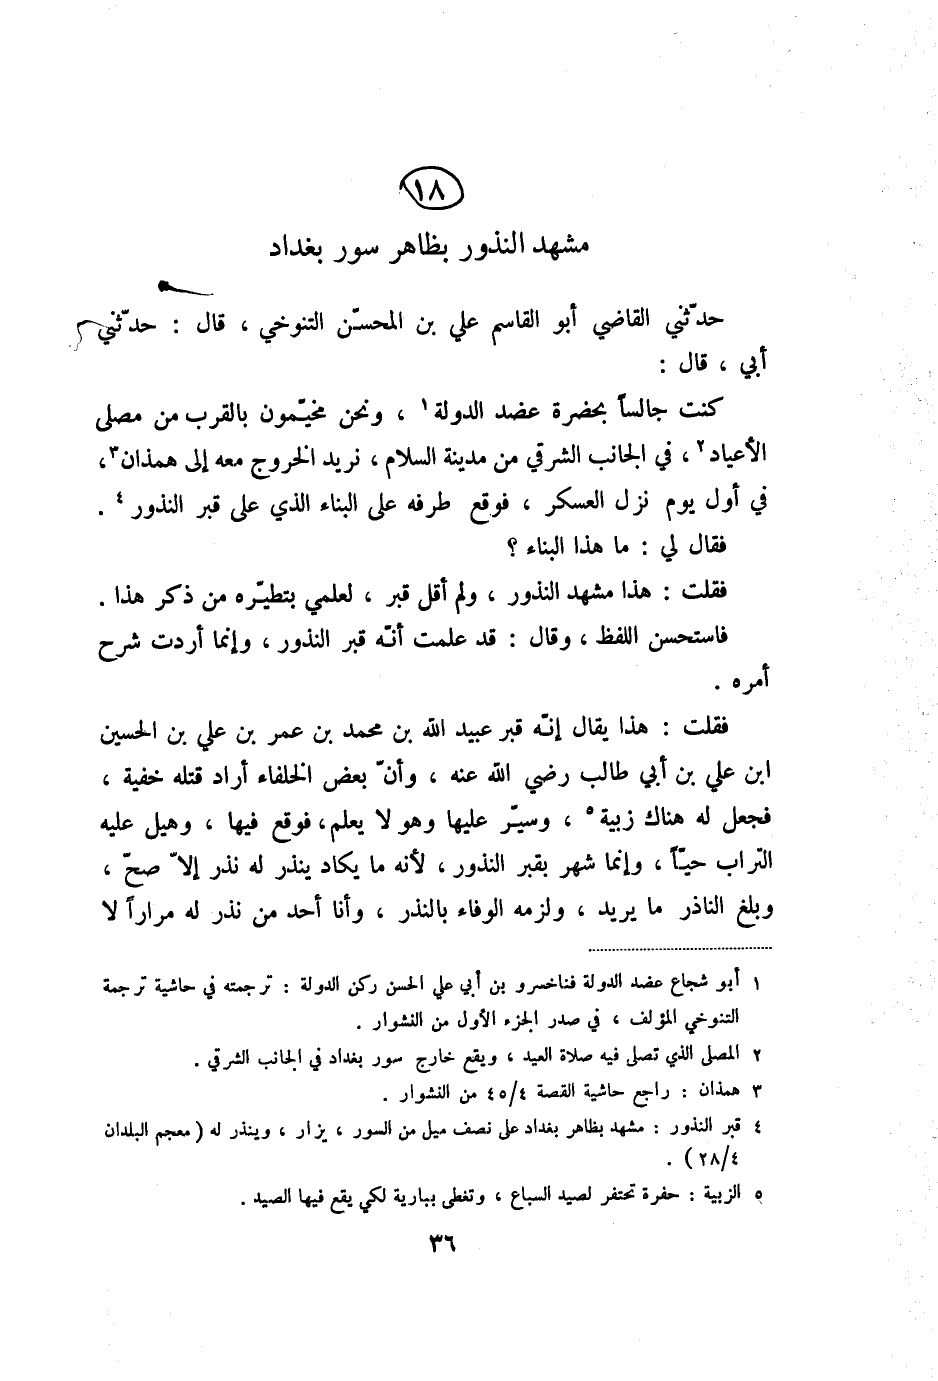 ١٨
مشهد النذور بظاهر سور بغداد
حدّثني القاضي أبو القاسم علي بن المحسّن التنوخي ، قال : حدّثني
أبي ، قال :
كنت جالساً بحضرة عضد الدولة ١ ، ونحن مخيّمون بالقرب من مصلى
الأعياد ٢ ، في الجانب الشرقي من مدينة السلام ، نريد الخروج معه إلى همذان ٣ ،
في أول يوم نزل العسكر ، فوقع طرفه على البناء الذي على قبر النذور ٤ .
فقال لي : ما هذا البناء ؟
فقلت : هذا مشهد النذور ، ولم أقل قبر ، لعلمي بتطيّره من ذكر هذا .
فاستحسن اللفظ ، وقال : قد علمت أنّه قبر النذور ، وإنما أردت شرح
أمره .
فقلت : هذا يقال إنّه قبر عبيد الله بن محمد بن عمر بن علي بن الحسين
ابن علي بن أبي طالب رضي الله عنه ، وأنّ بعض الخلفاء أراد قتله خفية ،
فجعل له هناك زبية ٥ ، وسيّر عليها وهو لا يعلم ، فوقع فيها ، وهيل عليه
التراب حيّاً ، وإنما شهر بقبر النذور ، لأنه ما يكاد ينذر له نذر إلاّ صحّ ،
وبلغ الناذر ما يريد ، ولزمه الوفاء بالنذر ، وأنا أحد من نذر له مراراً لا
١ أبو شجاع عضد الدولة فناخسرو بن أبي علي الحسن ركن الدولة : ترجمته في حاشية ترجمة
التنوخي المؤلف ، في صدر الجزء الأول من النشوار .
٢ المصلى الذي تصلى فيه صلاة العيد ، ويقع خارج سور بغداد في الجانب الشرقي .
٣ همذان : راجع حاشية القصة ٤/٤٥ من النشوار .
٤ قبر النذور : مشهد بظاهر بغداد على نصف ميل من السور ، يزار ، وينذر له ( معجم البلدان
٤/٢٨ ) .
٥ الزبية : حفرة تحتفر لصيد السباع ، وتغطى ببارية لكي يقع فيها الصيد .
٣٦